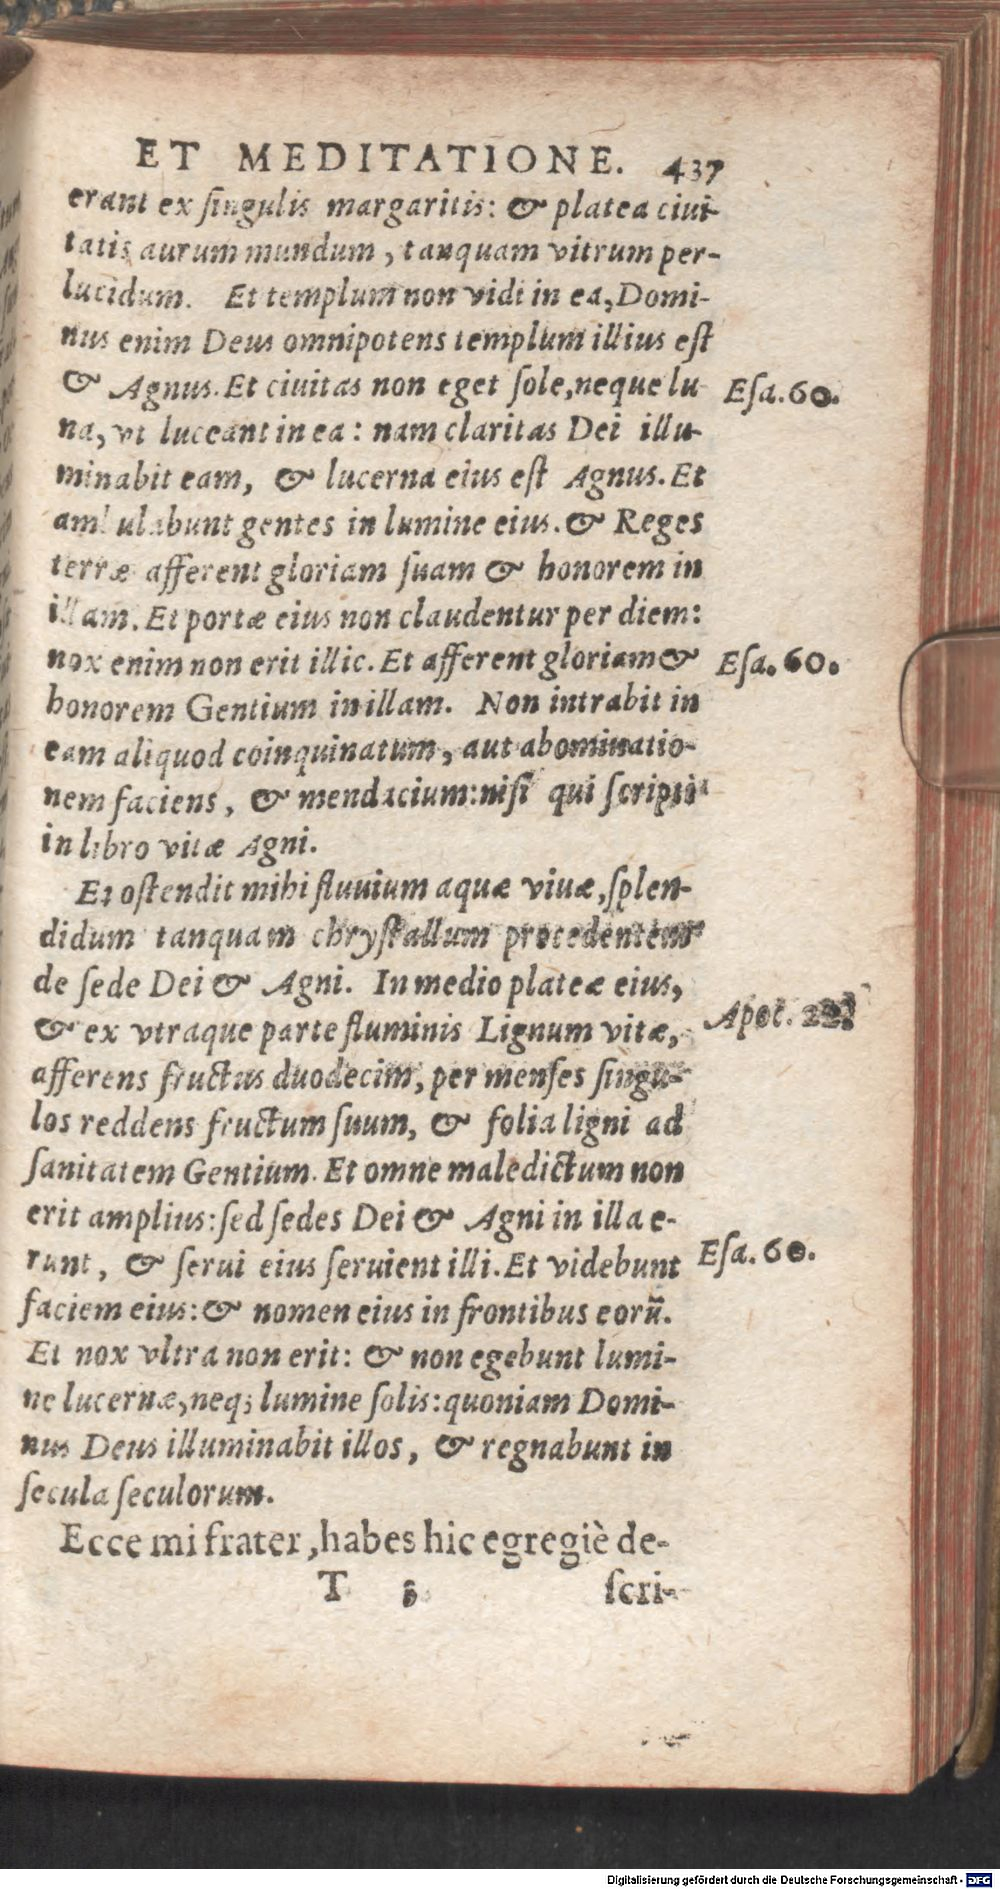 ET MEDITATIONE. 437
erant ex ſingulis margaritis: & platea ciui-
tatis aurum mundum, tanquam vitrum per-
lucidum. Et templum non vidi in ea, Domi-
nus enim Deus omnipotens templum illius eſt
& Agnus. Et ciuitas non eget ſole, neque lu-
Eſa. 60.
na, vt luceant in ea: nam claritas Dei illu-
minabit eam, & lucerna eius eſt Agnus. Et
ambulabunt gentes in lumine eius. & Reges
terræ afferent gloriam ſuam & honorem in
illam. Et portæ eius non claudentur per diem:
nox enim non erit illic. Et afferent gloriam &
Eſa. 60.
honorem Gentium in illam. Non intrabit in
eam aliquod coinquinatum, aut abominatio-
nem faciens, & mendacium: niſi qui ſcripti
in libro vitæ Agni.
Et oſtendit mihi fluuium aquæ viuæ, ſplen-
didum tanquam chryſtallum procedentem
de ſede Dei & Agni. In medio plateæ eius,
Apoc. 22.
& ex vtraque parte fluminis Lignum vitæ,
afferens fructus duodecim, per menſes ſingu-
los reddens fructum ſuum, & folia ligni ad
ſanitatem Gentium. Et omne maledictum non
erit amplius: ſed ſedes Dei & Agni in illa e-
Eſa. 60.
runt, & ſerui eius ſeruient illi. Et videbunt
faciem eius: & nomen eius in frontibus eorũ.
Et nox vltra non erit: & non egebunt lumi-
ne lucernæ, neq; lumine ſolis: quoniam Domi-
nus Deus illuminabit illos, & regnabunt in
ſecula ſeculorum.
Ecce mi frater, habes hic egregiè de-
T ſcri-
Digitalisierung gefördert durch die Deutsche Forschungsgemeinschaft - DFG